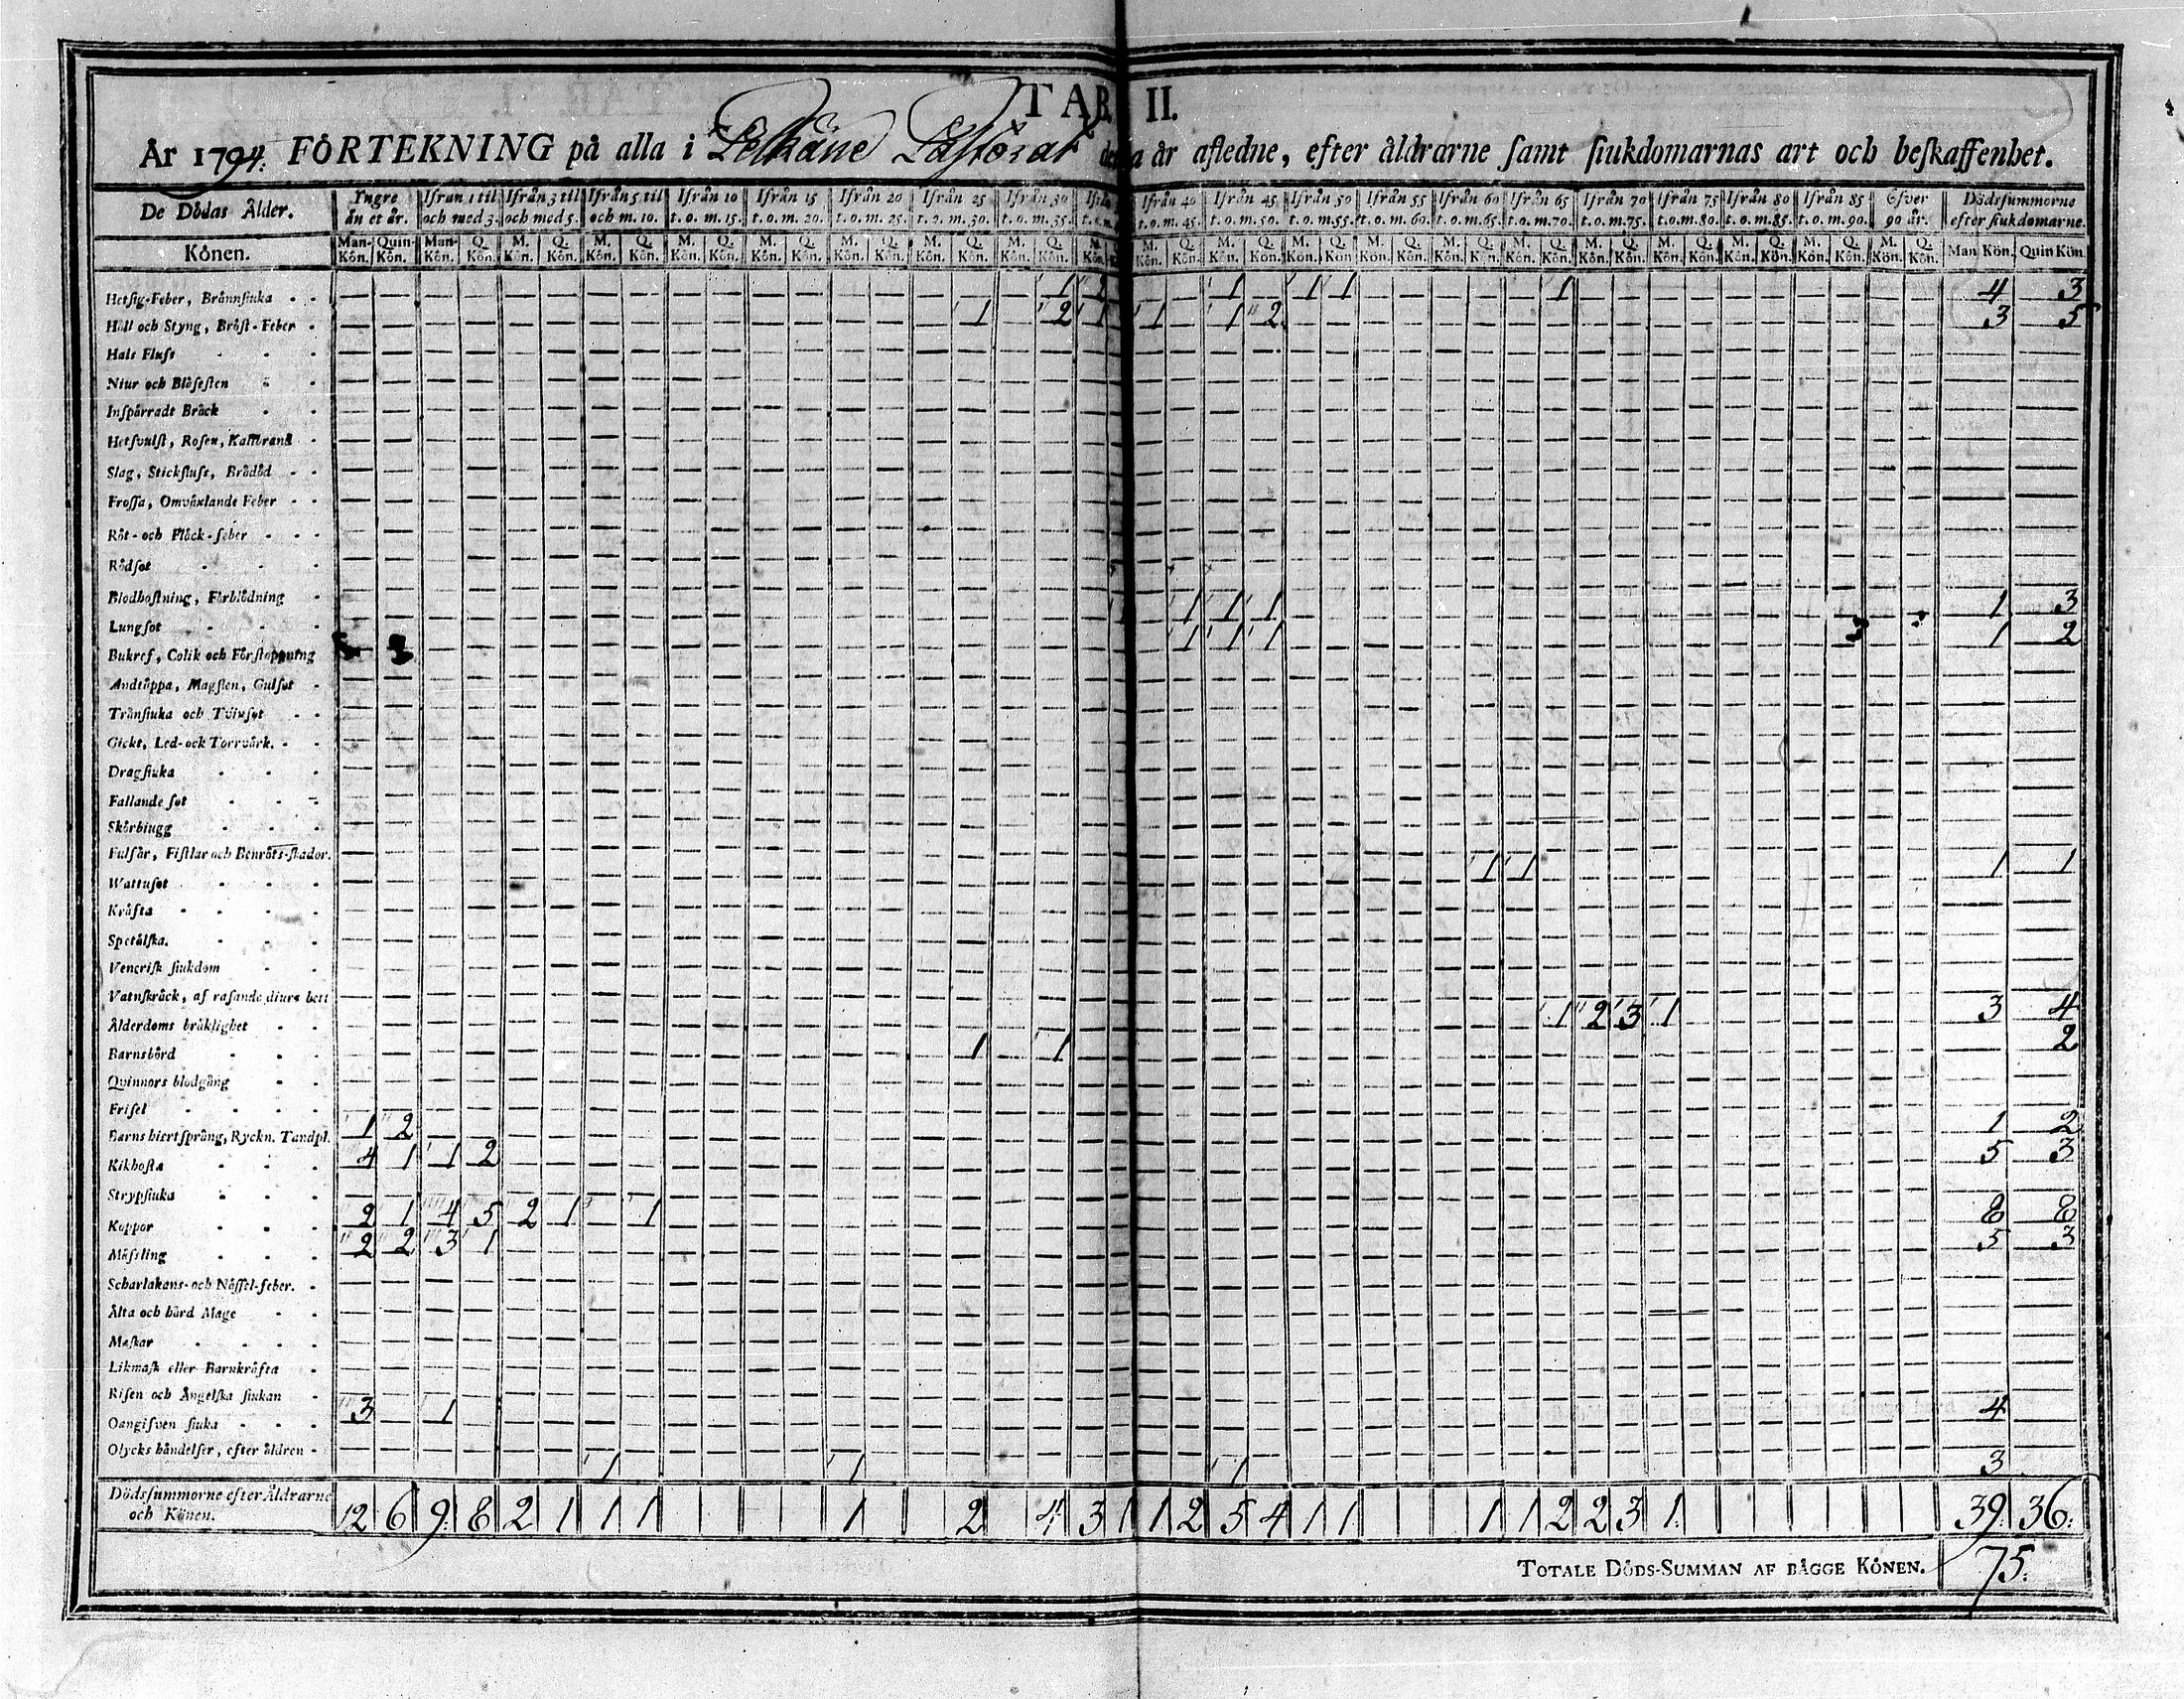 TAB. II.
År 1794. FÖRTEKNING på alla i Pelkäne Pastorat detta år afledne, efter åldrarne samt siukdomarnas art och beskaffenhet.
De Dödas Ålder. Yngre än et år. Ifrån 1 til och med 3. Ifrån 3 til och med 5. Ifrån 5 til och m. 10. Ifrån 10 t. o. m. 15. Ifrån 15 t. o. m. 20. Ifrån 20 t. o. m. 25. Ifrån 25 t. o. m. 30. Ifrån 30 t. o. m. 35. Ifrån 40 t. o. m. 45. Ifrån 45 t. o. m. 50. Ifrån 50 t. o. m. 55. Ifrån 55 t. o. m. 60. Ifrån 60 t. o. m. 65. Ifrån 65 t. o. m. 70. Ifrån 70 t. o. m. 75. Ifrån 75 t. o. m. 80. Ifrån 80 t. o. m. 85. Ifrån 85 t. o. m. 90. Öfver 90 år. Dödssummorne efter siukdomarne.
Könen. Man-Kön. Quin-Kön. Man-Kön. Q. Kön. M. Kön. Q. Kön. M. Kön. Q. Kön. M. Kön. Q. Kön. M. Kön. Q. Kön. M. Kön. Q. Kön. M. Kön. Q. Kön. M. Kön. Q. Kön. M. Kön. M. Kön. Q. Kön. M. Kön. Q. Kön. M. Kön. Q. Kön. M. Kön. Q. Kön. M. Kön. Q. Kön. M. Kön. Q. Kön. M. Kön. Q. Kön. M. Kön. Q. Kön. M. Kön. Q. Kön. M. Kön. Q. Kön. M. Kön. Q. Kön. Man Kön. Quin Kön.
Hetsig-Feber, Brännsiuka 1 2 1 1 1 1 4 3
Håll och Styng, Bröst-Feber 1 2 1 1 1 2 3 5
Hals Fluss
Niur och Blåsesten
Inspärradt Bråck
Hetsvulst, Rosen, Kallbrand
Slag, Stickfluss, Brådöd
Frossa, Omväxlande Feber
Röt- och Fläck-feber
Rödsot
Blodhostning, Förblödning
Lungsot 1 1 1 1 3
Bukref, Colik och Förstoppning 1 1 1 1 2
Andtäppa, Magsten, Gulsot
Trånsiuka och Tvinsot
Gickt, Led- ock Torrvärk.
Dragsiuka
Fallande sot
Skörbiugg
Fulsår, Fistlar och Benröts-skador.
Wattusot 1 1 1 1
Kräfta
Spetälska.
Venerisk siukdom
Vatnskräck, af rasande diurs bett
Ålderdoms bräklighet 1 2 3 1 3 4
Barnsbörd 1 1 2
Quinnors blodgång
Frisel
Barns hiertsprång, Ryckn. Tandpl. 1 2 1 2
Kikhosta 4 1 1 2 5 3
Strypsiuka
Koppor 2 1 4 5 2 1 1 8 8
Mässling 2 2 3 1 5 3
Scharlakans- och Nässel-feber.
Älta och hård Mage
Maskar
Likmask eller Barnkräfta
Risen och Ängelska siukan
Oangifven siuka 3 1 4
Olycks händelser, efter åldren 1 1 1 3
Dödssummorne efter Åldrarne och Könen. 12 6 9 8 2 1 1 1 1 2 4 3 1 1 2 5 4 1 1 1 1 2 2 3 1 39. 36.
TOTALE DÖDS-SUMMAN AF BÄGGE KÖNEN. 75.